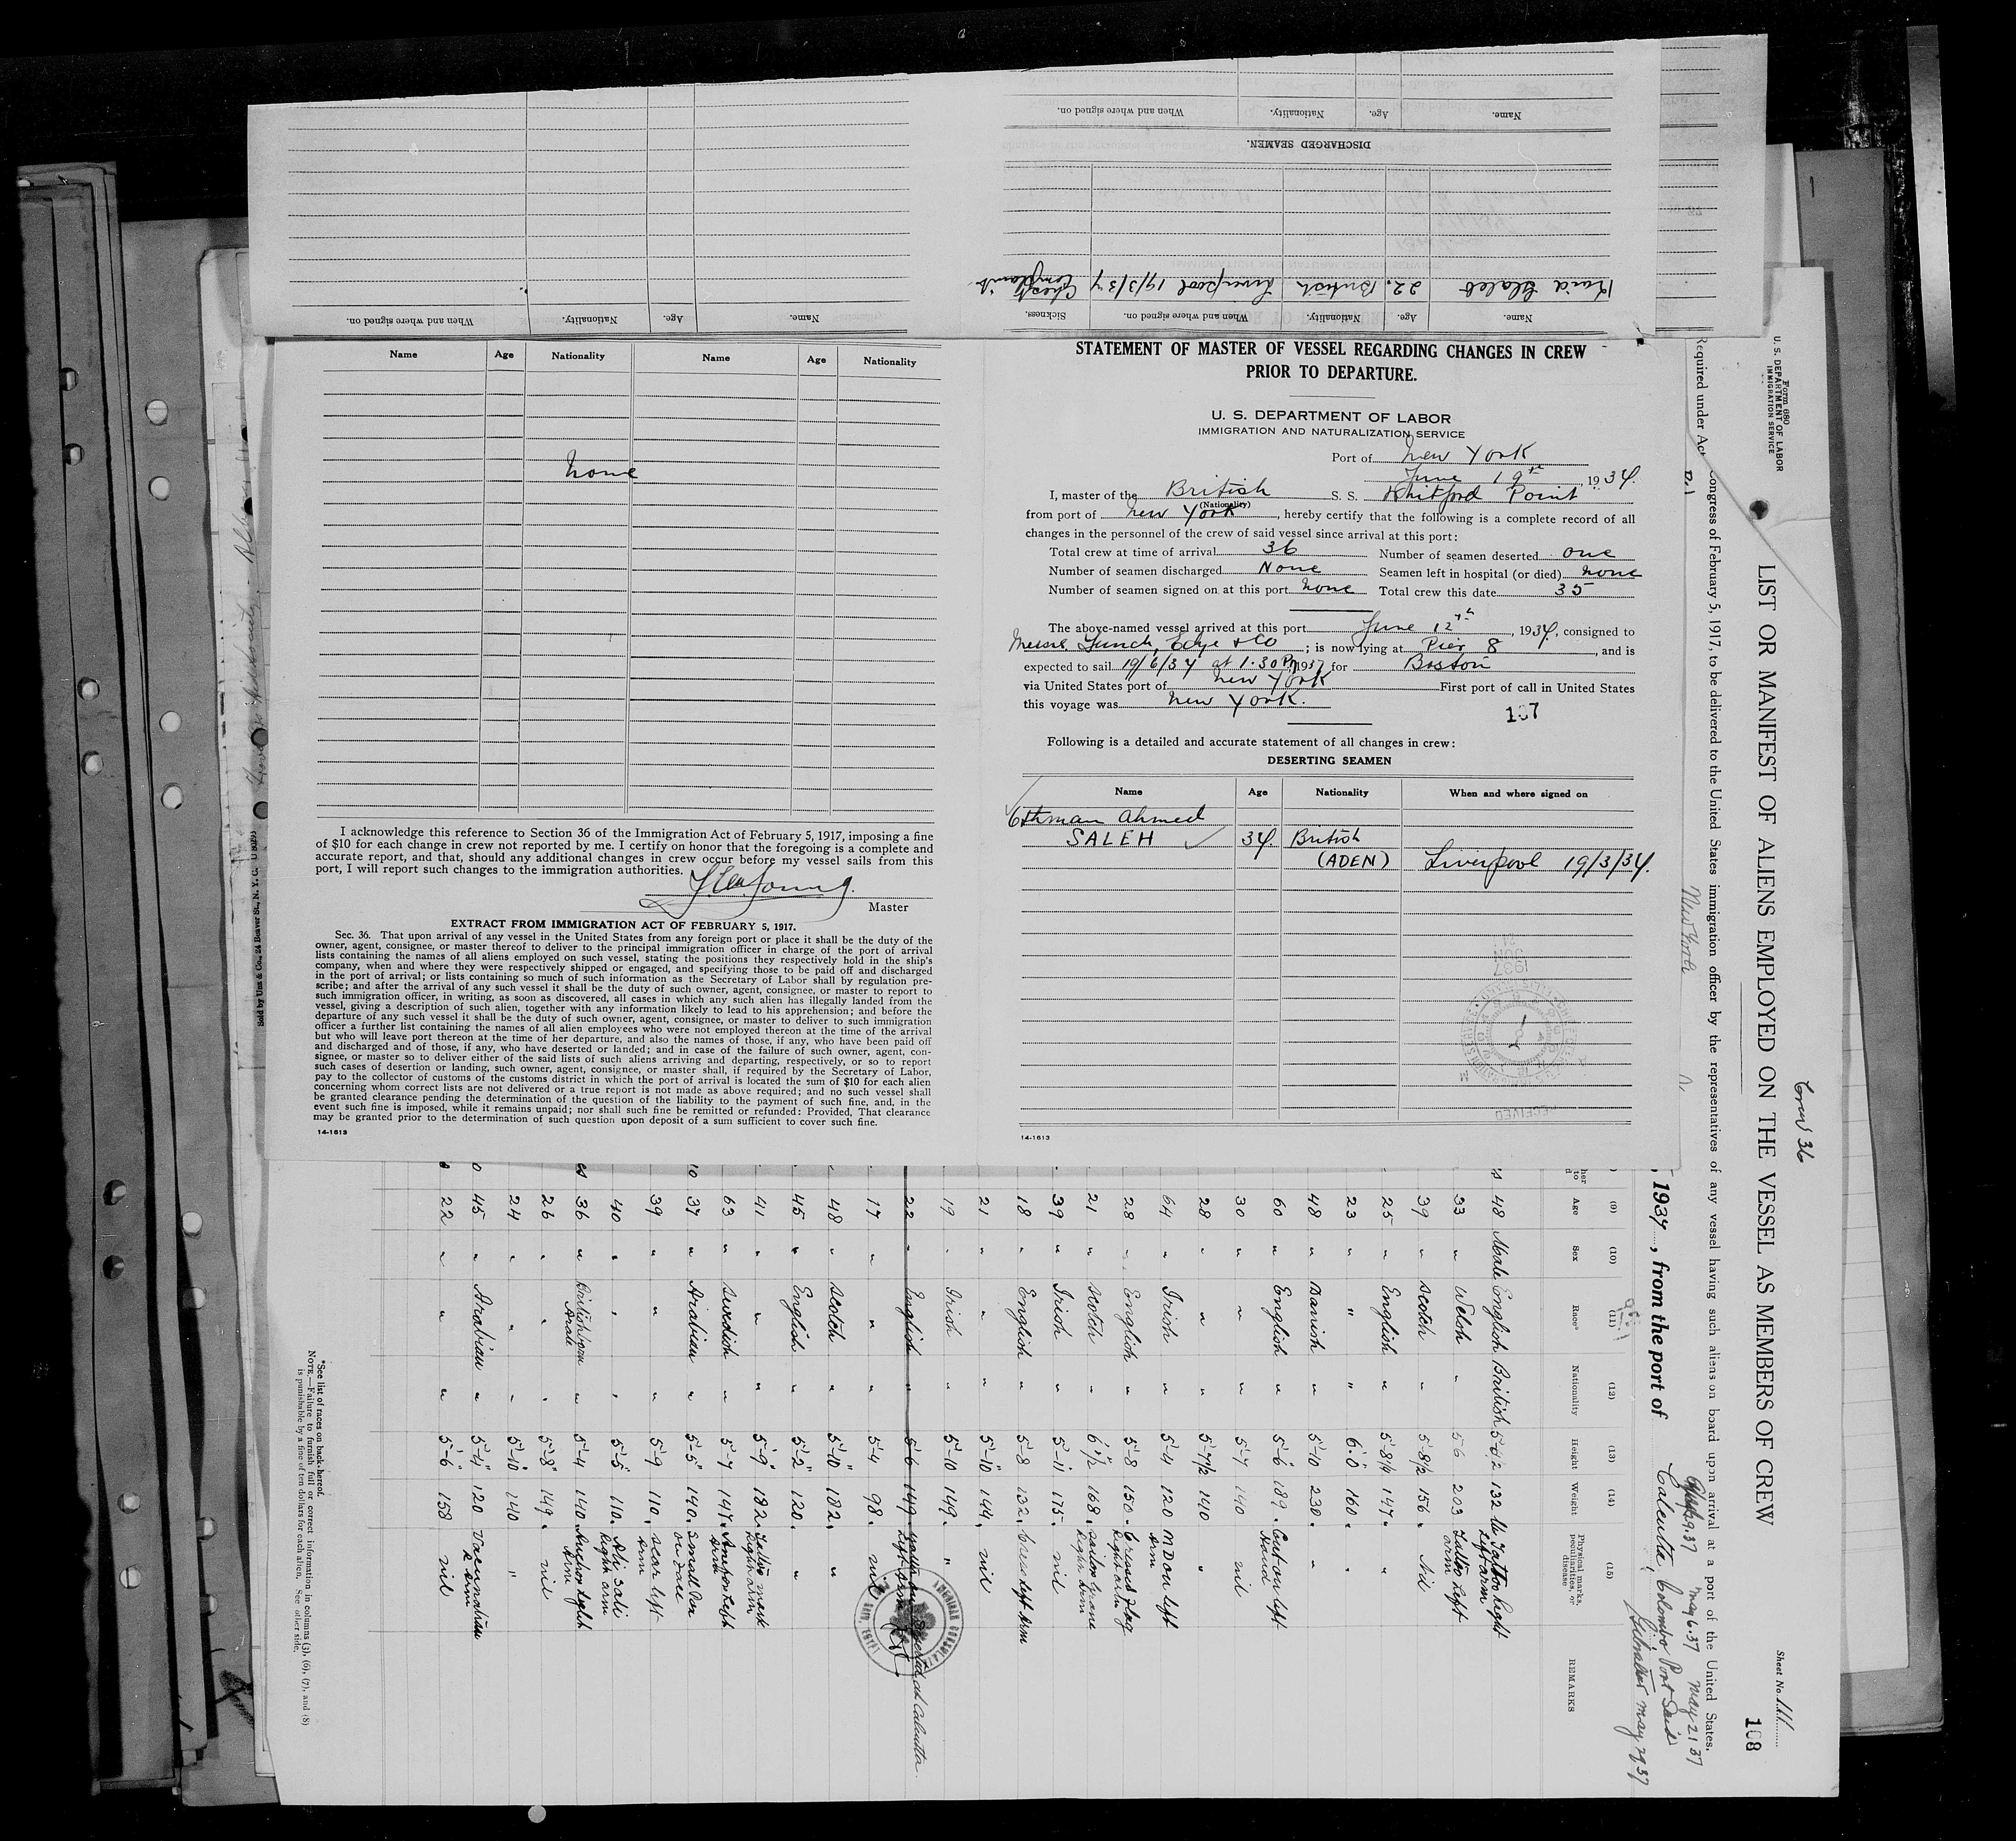 Name. Age. Nationality. When and where signed on.
DISCHARGED SEAMEN.
22. British Liverpool 19/3/37 Chest Complaint
Name. Age. Nationality. When and where signed on. Sickness.
Name. Age. Nationality. When and where signed on.
Name Age Nationality Name Age Nationality
None
I acknowledge this reference to Section 36 of the Immigration Act of February 5, 1917, imposing a fine
of $10 for each change in crew not reported by me. I certify on honor that the foregoing is a complete and
accurate report, and that, should any additional changes in crew occur before my vessel sails from this
port, I will report such changes to the immigration authorities.
Master
EXTRACT FROM IMMIGRATION ACT OF FEBRUARY 5, 1917.
Sec. 36. That upon arrival of any vessel in the United States from any foreign port or place it shall be the duty of the
owner, agent, consignee, or master thereof to deliver to the principal immigration officer in charge of the port of arrival
lists containing the names of all aliens employed on such vessel, stating the positions they respectively hold in the ship's
company, when and where they were respectively shipped or engaged, and specifying those to be paid off and discharged
in the port of arrival; or lists containing so much of such information as the Secretary of Labor shall by regulation pre-
scribe; and after the arrival of any such vessel it shall be the duty of such owner, agent, consignee, or master to report to
such immigration officer, in writing, as soon as discovered, all cases in which any such alien has illegally landed from the
vessel, giving a description of such alien, together with any information likely to lead to his apprehension; and before the
departure of any such vessel it shall be the duty of such owner, agent, consignee, or master to deliver to such immigration
officer a further list containing the names of all alien employees who were not employed thereon at the time of the arrival
but who will leave port thereon at the time of her departure, and also the names of those, if any, who have been paid off
and discharged and of those, if any, who have deserted or landed; and in case of the failure of such owner, agent, con-
signee, or master so to deliver either of the said lists of such aliens arriving and departing, respectively, or so to report
such cases of desertion or landing, such owner, agent, consignee, or master shall, if required by the Secretary of Labor,
pay to the collector of customs of the customs district in which the port of arrival is located the sum of $10 for each alien
concerning whom correct lists are not delivered or a true report is not made as above required; and no such vessel shall
be granted clearance pending the determination of the question of the liability to the payment of such fine, and, in the
event such fine is imposed, while it remains unpaid; nor shall such fine be remitted or refunded: Provided, That clearance
may be granted prior to the determination of such question upon deposit of a sum sufficient to cover such fine.
14-1613
STATEMENT OF MASTER OF VESSEL REGARDING CHANGES IN CREW
PRIOR TO DEPARTURE.
U. S. DEPARTMENT OF LABOR
IMMIGRATION AND NATURALIZATION SERVICE
Port of New York
June 19th, 1937.
I, master of the British S. S. Whitford Point
(Nationality)
from port of New York, hereby certify that the following is a complete record of all
changes in the personnel of the crew of said vessel since arrival at this port:
Total crew at time of arrival 36 Number of seamen deserted one
Number of seamen discharged None Seamen left in hospital (or died) none
Number of seamen signed on at this port none Total crew this date 35
The above-named vessel arrived at this port June 12th, 1937, consigned to
Messrs Funch, Edye & Co; is now lying at Pier 8, and is
expected to sail 19/6/37 at 1.30 PM 1937 for Boston
via United States port of New York First port of call in United States
this voyage was New York.
107
Following is a detailed and accurate statement of all changes in crew:
DESERTING SEAMEN
Name Age Nationality When and where signed on
Othman Ahmed
SALEH 34. British
(ADEN) Liverpool 19/3/37.
RECEIVED
14-1613
Form 680
U. S. DEPARTMENT OF LABOR
IMMIGRATION SERVICE
Crew 36
Sheet No.
108
LIST OR MANIFEST OF ALIENS EMPLOYED ON THE VESSEL AS MEMBERS OF CREW
Required under Act Congress of February 5, 1917, to be delivered to the United States immigration officer by the representatives of any vessel having such aliens on board upon arrival at a port of the United States.
New York
May 6.37 May 21 37
, 1937, from the port of Calcutta, Colombo Port Said
Gibraltar May 29 37
(9) (10) (11) (12) (13) (14) (15)
Age Sex Race* Nationality Height Weight Physical marks, peculiarities, or disease REMARKS
48 Male English British 132 Tattoo Right Left arm
33 " Welsh " 5-6 203 Tattoo Left arm
39 " Scotch " 5-8½ 156 Nil
25 " English " 5-8¼ 147 "
23 " " " 6.0 160 "
48 " Danish " 5-10 230 "
60 " English " 5-6 189 Cut on left hand
30 " " " 5-7 140 nil
28 " " " 5-7½ 140 "
64 " Irish " 5-4 120 M D on left arm
28 " English " 5-8 150 Crossed Flag Right arm
21 " Scotch " 6 ½ 168 Right arm
39 " Irish " 5-11 175 nil
18 " English " 5-8 132 Left arm
21 " " " 5-10 144 nil
19 " Irish " 5-10 149 "
22 " English " 5-6 149 Left arm Deserted at Calcutta
17 " " " 5-4 98 nil
48 " Scotch " 5-10 182 "
45 " English " 5-2 120 "
41 " " " 5-9 182 Tattoo mark Right arm
63 " Swedish " 5-7 147 Anchor Left arm
37 " Arabian " 5-5 140 Small Pox on face
39 " " " 5-9 110 scar left arm
40 " " " 5-5 110 Ali Sali Right arm
36 " British born Arab " 5-4 140 Anchor Right Arm
26 " " " 5-8 149 nil
24 " " " 5-10 140 "
45 " Arabian " 5-4 120 Vaccination R arm
22 " " " 5-6 158 nil
AMERICAN CONSULATE
*See list of races on back hereof.
NOTE.—Failure to furnish full or correct information in columns (3), (6), (7), and (8)
is punishable by a fine of ten dollars for each alien. See other side.
Sold by Unz & Co., 24 Beaver St., N. Y. C.